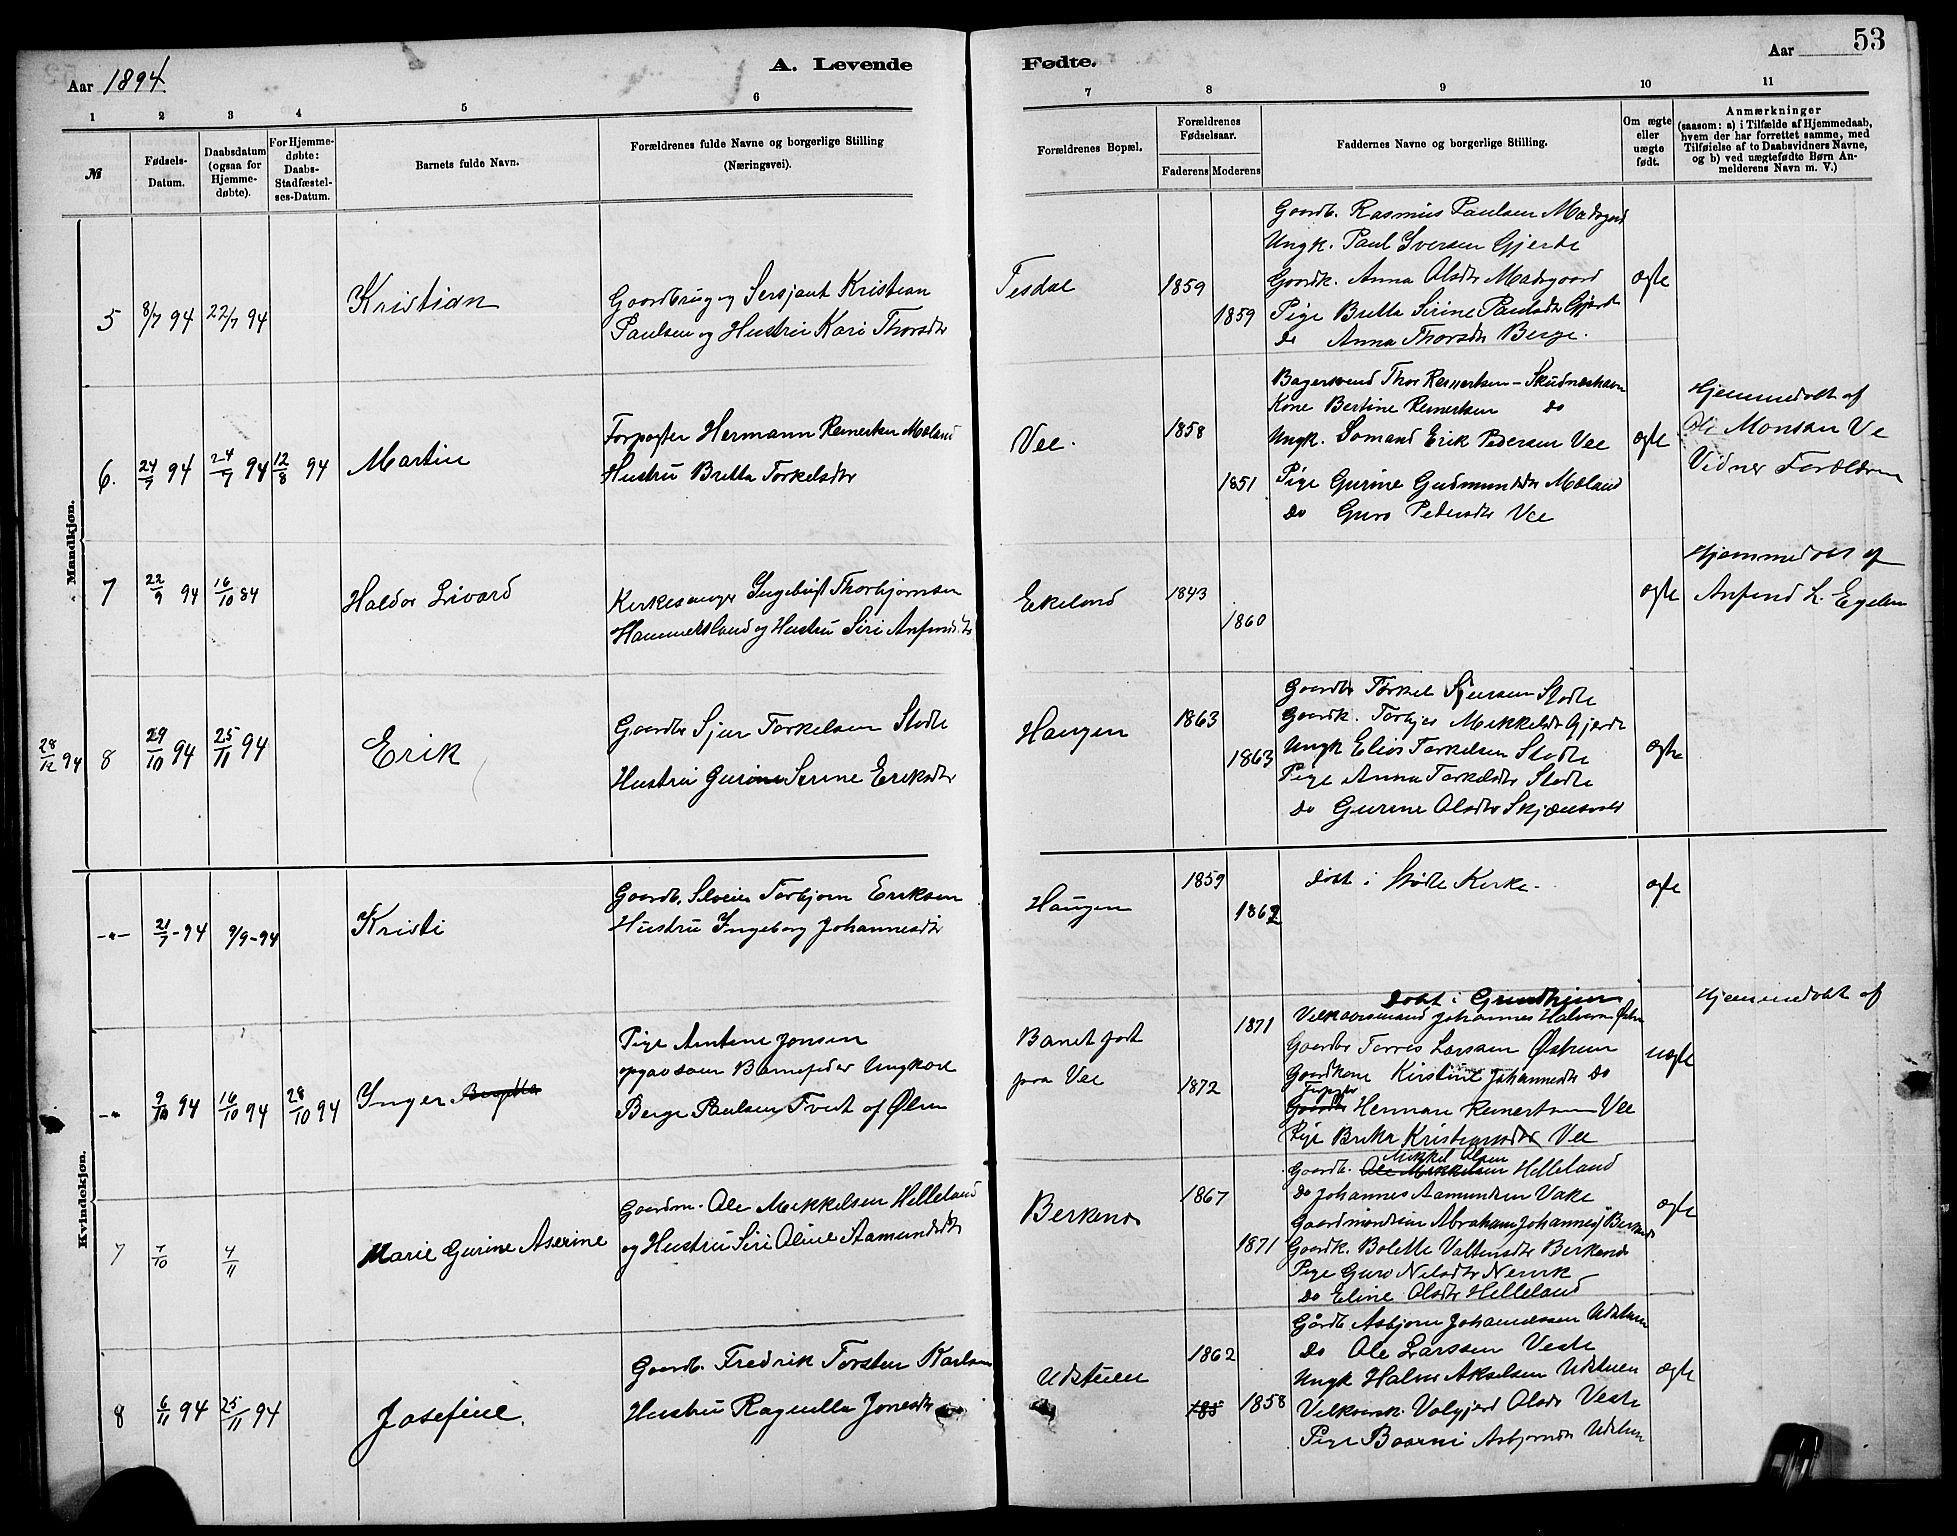 Aar 1894
A. Levende
Fødte.
Aar 53
1 2 3 4 5 6 7 8 9 10 11
№
Fødsels-
Datum.
Daabsdatum
(ogsaa for
Hjemme-
døbte).
For Hjemme-
døbte:
Daabs-
Stadfæstel-
ses-Datum.
Barnets fulde Navn.
Forældrenes fulde Navne og borgerlige Stilling
(Næringsvei).
Forældrenes Bopæl.
Forældrenes
Fødselsaar.
Faderens Moderens
Faddernes Navne og borgerlige Stilling.
Om ægte
eller
uægte
født.
Anmærkninger
(saasom: a) i Tilfælde af Hjemmedaab,
hvem der har forrettet samme, med
Tilføielse af to Daabsvidners Navne,
og b) ved uægtefødte Børn An-
melderens Navn m. V.)
Mandkjøn.
5 8/7 94 22/7 94
Kristian
Gaardbrug og Sersjant Kristian
Paulsen og Hustru Kari Thorsdtr
Tesdal
1859
1859
Gaardb. Rasmus Paulsen Madsgard
Ungk. Paul Iversen Gjerde
Gaardk. Anna Olsdtr Madsgaard
Pige Britta Sirine Paulsdtr Gjerde
Do Anna Thorsdtr Berge.
ægte
6. 24/7 94 24/7 94 12/8 94
Martin
Forpagter Hermann Remertsen Mæland
Hustru Britta Torkelsdtr
Vee.
1858
1851
Bagersvend Thor Remertsen - Skudneshavn
Kone Bertine Remertsen Do
Ungk. Sømand Erik Pedersen Vee
Pige Gurine Gudmundsdtr Mæland
Do Guro Pedersdtr Vee
ægte
Hjemmedøbt af
Ole Monsen Ve
Vidner Forældrene
7 22/9 94 16/10 84
Haldor Sivard
Kirkesanger Ingebrigt Thorbjørnsen
Hammersland og Hustru Siri Anfinnsdtr
Ekeland
1843
1860
ægte
Hjemmedøbt af
Anfind L. Egeland
28/12 94 8 29/10 94 25/11 94
Erik
Gaardbr Sjur Torkelsen Stødle
Hustru Gurine Serine Eriksdtr
Haugen
1863
1863
Gaardbr Torkel Sjursen Stødle
Gaardk. Torbjør Mikkelsdtr Gjerde
Ungk Elias Torkelsen Stødle
Pige Anna Torkelsdtr Stødle
Do Gurine Olsdtr Skjænsvold
ægte
Kvindekjøn.
-"- 21/7 - 94 9/9 - 94
Kristi
Gaardb. Torbjørn Eriksen
Hustru Ingeborg Johannesdtr
Haugen
1859
1862
Døbt i Stødle Kirke.
ægte
-" 9/10 94 16/10 94 28/10 94
Inger
Pige Amtine Jonsen
opgav som Barnefader Ungkarl
Berge Paulsen Tvedt af Ølen
Barnet født
paa Vee
1871
1872
Døbt i Grindheim
Johannes Halvorsen Ølen
Gaardbr Torres Larsen Østrem
Gaardkone Kirstine Johannesdtr Do
Forpagter
Herman Remertsen Vee
Pige Britta Kristiansdtr Vee
uægte
Hjemmedøbt af
7 7/10 4/11
Marie Gurine Aserine
Gaardm. Ole Mikkelsen Helleland
og Hustru Siri Oline Aamundsdtr
Berkenes
1867
1871
Mikkel Olsen
Gaardb. Ole Mikkelsen Helleland
Do Johannes Aamundsen Vake
Gaardmandssøn Abraham Johannes Berkenes
Gaardk. Bolette Valtinsdtr Berkenes
Pige Guro Nilsdtr Nervik
Do Eline Olsdtr Helleland
ægte
8 6/11 94 25/11 94
Josefine.
Gaardb. Fredrik Torsten Karlsen
Hustru Ragnilla Jonesdtr
Udstuen
1862
185
1858
Gårdb Asbjørn Johannessen Udstuen
Do Ole Larssen Veste
Ungk Halvor Akselsen Udstuen
Valgjerd Olsdr Veste
Pige Baarni Asbjørnsdtr Udstuen
ægte